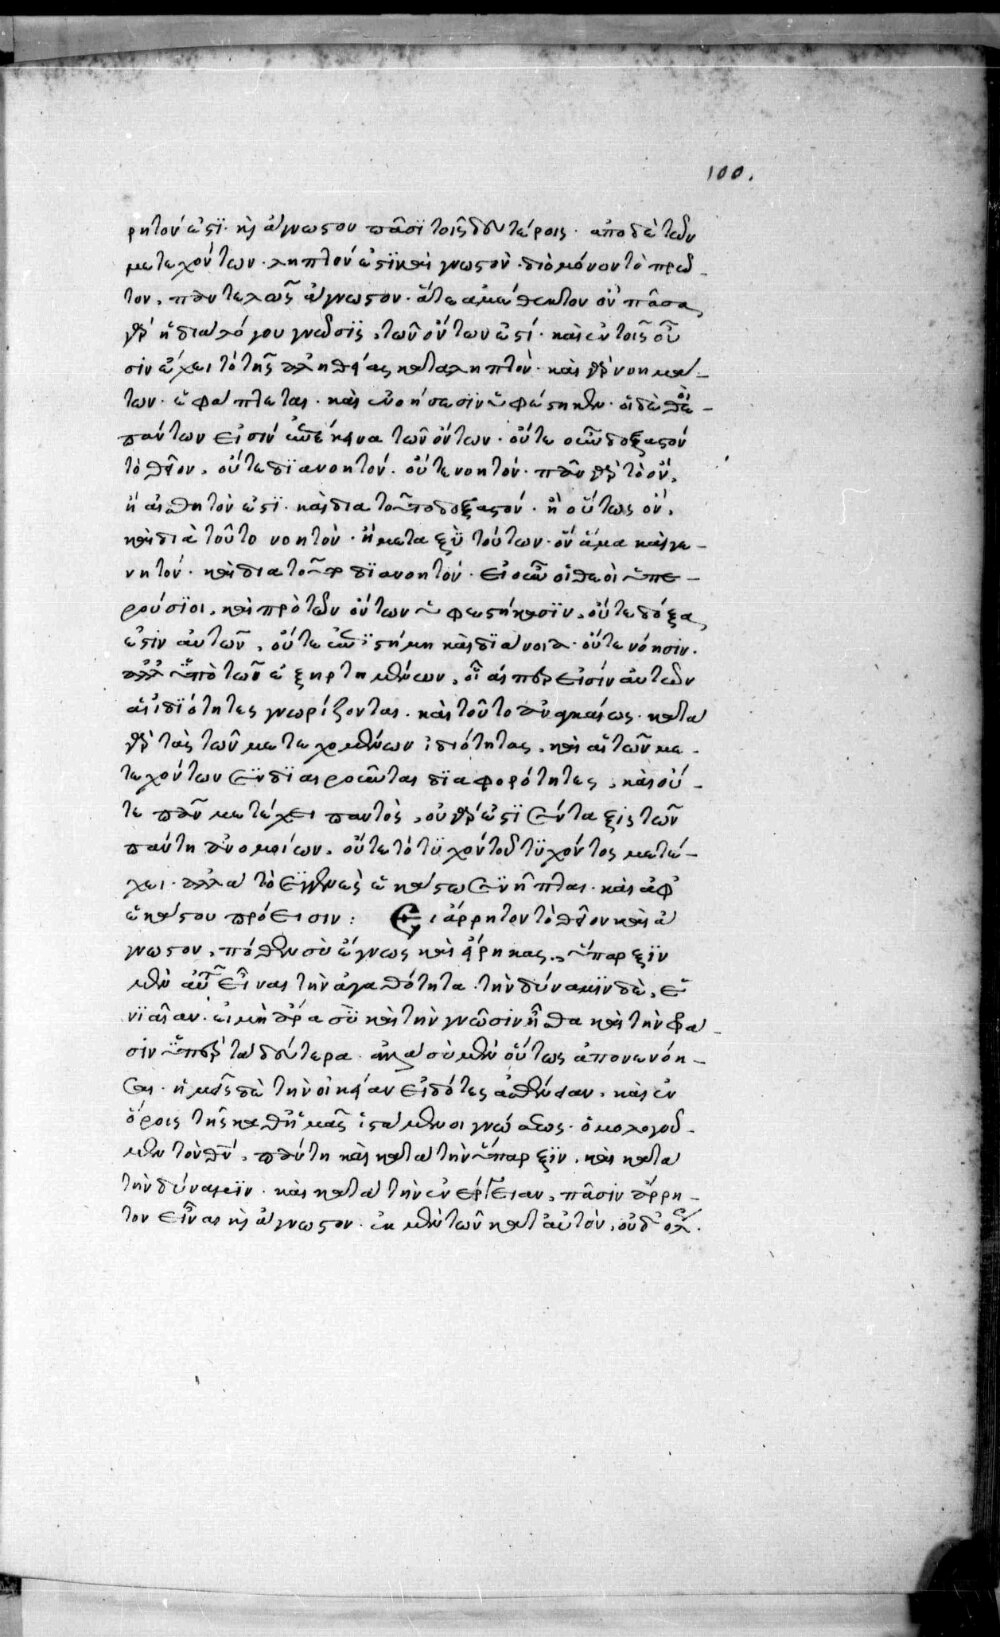 100.
ρητόν ἐστι· κὶ ἄγνωστον πᾶσι τοῖς δευτέροις· ἀπὸ δὲ τῶν
μετεχόντων· ληπτόν ἐστι καὶ γνωστόν· διὸ μόνον τὸ πρῶ-
τον, παντελῶς ἄγνωστον· ἅτε ἀμέθεκτον ὄν πᾶσα
γὰρ ἡ διὰ λόγου γνῶσις, τῶν ὄντων ἐστί· καὶ ἐν τοῖς οὖ
σιν ἔχει τὸ τῆς ἀληθείας καταληπτόν· καὶ γὰρ νοημά-
των· ἐφάπτεται· καὶ ἐν νοήσεσιν ὑφέστηκεν· οἱ δὲ θεοὶ
πάντων εἰσὶν ἐπέκεινα τῶν ὄντων· οὔτε οὖν δοξαστόν
τὸ θεῖον, οὔτε διανοητόν· οὔτε νοητόν· πᾶν γὰρ τὸ ὄν,
ἢ αἰσθητόν ἐστι· καὶ διὰ τοῦτο δοξαστόν· ἢ ὄντως ὄν,
καὶ διὰ τοῦτο νοητόν· ἢ μεταξὺ τούτων· ὂν ἅμα καὶ γε-
νητόν· καὶ διὰ τοῦτο διανοητόν· εἰ οὖν οἱ θεοὶ ὑπε-
ρούσιοι, καὶ πρὸ τῶν ὄντων ὑφεστήκασιν, οὔτε δόξα
ἐστὶν αὐτῶν, οὔτε ἐπιστήμη καὶ διάνοια· οὔτε νόησιν·
ἀλλ' ἀπὸ τῶν ἐξηρτημένων, οἷαί περ εἰσὶν αὐτῶν
αἱ ἰδιότητες γνωρίζονται· καὶ τοῦτο ἀναγκαίως· κατὰ
γὰρ τὰς τῶν μετεχομένων ἰδιότητας, καὶ αἱ τῶν με-
τεχόντων συνδιαιροῦνται διαφορότητες, καὶ οὔ-
τε πᾶν μετέχει παντός, οὐ γάρ ἐστι σύνταξις τῶν
πάντη ἀνομοίων, οὔτε τὸ τυχὸν τοῦ τυχόντος μετέ-
χει· ἀλλὰ τὸ συγγενὲς ἑκάστω συνῆπται· καὶ ἀφ'
ἑκάστου πρόεισιν: Εἰ ἄρρητον τὸ θεῖον καὶ ἄ
γνωστον, πόθεν σὺ ἔγνως καὶ εἴρηκας, ὕπαρξιν
μὲν αὐτῶν εἶναι τὴν ἀγαθότητα· τὴν δύναμιν δὲ, ἑ
νιαίαν· εἰ μὴ ἄρα σὺ καὶ τὴν γνῶσιν ἦσθα καὶ τὴν φά-
σιν ὑπὲρ τὰ δεύτερα· ἀλλὰ σὺ μὲν οὕτως ἀπονενόη-
σαι· ἡμεῖς δὲ τὴν οἰκείαν εἰδότες ἀσθένειαν, καὶ ἐν
ὅροις τῆς καθ' ἡμᾶς ἱστάμενοι γνώσεως· ὁμολογοῦ-
μεν τὸν θεόν, πάντη καὶ κατὰ τὴν ὕπαρξιν, καὶ κατὰ
τὴν δύναμιν· καὶ κατὰ τὴν ἐνέργειαν, πᾶσιν ἄρρη-
τον εἶναι κὶ ἄγνωστον· ἐκ μὲν τῶν κατ' αὐτόν, οὐδ' ὅλως·